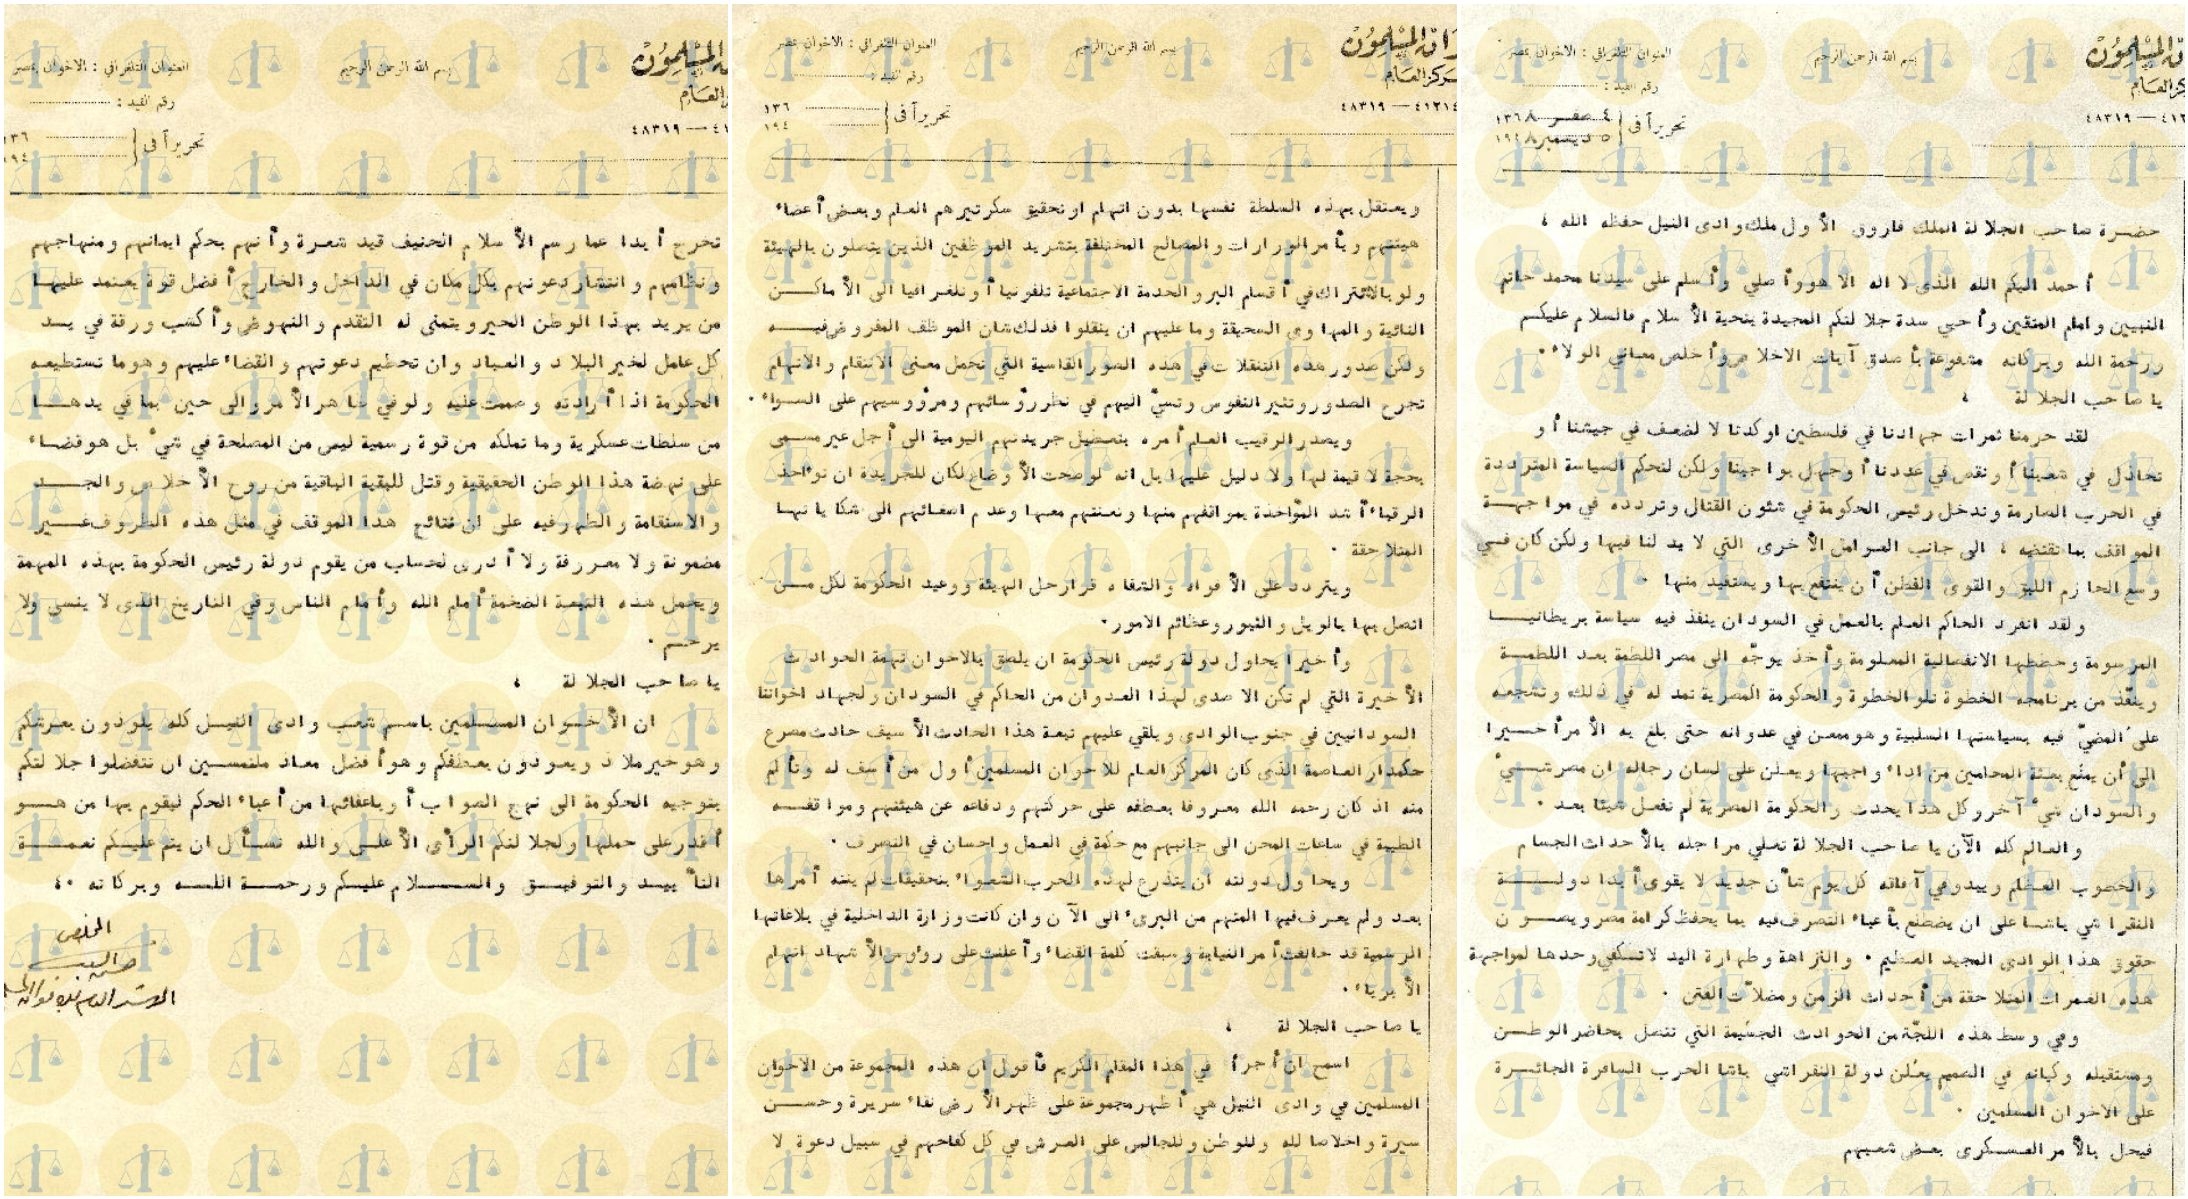 ن المسلمون
كز العام
بسم الله الرحمن الرحيم
العنوان التلغرافي : الاخوان بمصر
رقم القيد :
٤١٢ — ٤٨٣١٩
تحريرا فى ٤ صفر ١٣٦٨
٥ ديسمبر ١٩٤٨
حضرة صاحب الجلالة الملك فاروق الأول ملك وادى النيل حفظه الله ،
أحمد اليكم الله الذى لا اله الا هو وأصلي وأسلم على سيدنا محمد خاتم
النبيين وامام المتقين وأحيي سدة جلالتكم المجيدة بتحية الأسلام فالسلام عليكم
ورحمة الله وبركاته مشفوعة بأصدق آيات الاخلاص وأخلص معاني الولاء .
يا صاحب الجلالة ،
لقد حرمنا ثمرات جهادنا في فلسطين اوكدنا لا لضعف في جيشنا أو
تخاذل في شعبنا أو نقص في عددنا أو جهل بواجبنا ولكن لتحكم السياسة المترددة
في الحرب الصارمة وتدخل رئيس الحكومة في شئون القتال وتردده في مواجهة
المواقف بما تقتضيه ، الى جانب العوامل الأخرى التي لا يد لنا فيها ولكن كان في
وسع الحازم اللبق والقوى الفطن أن ينتفع بها ويستفيد منها .
ولقد انفرد الحاكم العام بالعمل في السودان ينفذ فيه سياسة بريطانيا
المرسومة وخططها الانفصالية المعلومة وأخذ يوجّه الى مصر اللطمة بعد اللطمة
وينفّذ من برنامجه الخطوة تلو الخطوة والحكومة المصرية تمد له في ذلك وتشجعه
على المضيّ فيه بسياستها السلبية وهو ممعن في عدوانه حتى بلغ به الأمر أخيرا
الى أن يمنع بعثة المحامين من اداء واجبها ويعلن على لسان رجاله ان مصر شيء
والسودان شيء آخر وكل هذا يحدث والحكومة المصرية لم تفعل شيئا بعد .
والعالم كله الآن يا صاحب الجلالة تغلي مراجله بالأحداث الجسام
والخطوب العظام ويبدو في آفاقه كل يوم شأن جديد لا يقوى أبدا دولة
النقراشي باشا على ان يضطلع بأعباء التصرف فيه بما يحفظ كرامة مصر ويصون
حقوق هذا الوادى المجيد العظيم . والنزاهة وطهارة اليد لا تكفي وحدها لمواجهة
هذه الغمرات المتلاحقة من أحداث الزمن ومضلات الفتن .
وفي وسط هذه اللجّة من الحوادث الجسّيمة التي تتصل بحاضر الوطن
ومستقبله وكيانه في الصميم يعلن دولة النقراشي باشا الحرب السافرة الجائرة
على الاخوان المسلمين .
فيحل بالأمر العسكرى بعض شعبهم
وان المسلمون
مركز العام
بسم الله الرحمن الرحيم
العنوان التلغرافي : الاخوان بمصر
رقم القيد :
٤١٢١٤ — ٤٨٣١٩
تحريرا فى ١٣٦
١٩٤
ويعتقل بهذه السلطة نفسها بدون اتهام او تحقيق سكرتيرهم العام وبعض أعضاء
هيئتهم ويأمر الوزارات والمصالح المختلفة بتشريد الموظفين الذين يتصلون بالهيئة
ولو بالاشتراك في أقسام البر والخدمة الاجتماعية تلفونيا أو تلغرافيا الى الأماكن
النائية والمهاوى السحيقة وما عليهم ان ينقلوا فذلك شان الموظف المفروض فيه
ولكن صدور هذه التنقلات في هذه الصور القاسية التي تحمل معنى الانتقام والاتهام
تجرح الصدور وتثير النفوس وتسيّ اليهم في نظر رؤسائهم ومرؤوسيهم على السواء .
ويصدر الرقيب العام أمره بتعطيل جريدتهم اليومية الى أجل غير مسمى
بحجة لا قيمة لها ولا دليل عليها بل انه لو صحت الأوضاع لكان للجريدة ان تؤاخذ
الرقباء أشد المؤاخذة بمواقفهم منها وتعنتهم معها وعدم اصغائهم الى شكاياتها
المتلاحقة .
ويتردد على الأفواه والشفاه قرار حل الهيئة ووعيد الحكومة لكل من
اتصل بها بالويل والثبور وعظائم الامور .
وأخيرا يحاول دولة رئيس الحكومة ان يلصق بالاخوان تهمة الحوادث
الأخيرة التي لم تكن الا صدى لهذا العدوان من الحاكم في السودان ولجهاد اخواننا
السودانيين في جنوب الوادى ويلقي عليهم تبعة هذا الحادث الأسيف حادث مصرع
حكمدار العاصمة الذى كان المركز العام للاخوان المسلمين أول من أسف له وتألم
منه اذ كان رحمه الله معروفا بعطفه على حركتهم ودفاعه عن هيئتهم ومواقفه
الطيبة في ساعات المحن الى جانبهم مع حكمة في العمل واحسان في التصرف .
ويحاول دولته ان يتذرع لهذه الحرب الشعواء بتحقيقات لم ينته أمرها
بعد ولم يعرف فيها المتهم من البرىء الى الآن وان كانت وزارة الداخلية في بلاغاتها
الرسمية قد خالفت أمر النيابة وسبقت كلمة القضاء وأعلنت على رؤوس الأشهاد اتهام
الأبرياء .
يا صاحب الجلالة ،
اسمح ان أجرأ في هذا المقام الكريم فأقول ان هذه المجموعة من الاخوان
المسلمين في وادى النيل هي أطهر مجموعة على ظهر الأرض نقاء سريرة وحسن
سيرة واخلاصا لله وللوطن وللجالس على العرش في كل كفاحهم في سبيل دعوة لا
المسلمون
العام
بسم الله الرحمن الرحيم
العنوان التلغرافي : الاخوان بمصر
رقم القيد :
٤١ — ٤٨٣١٩
تحريرا فى ١٣٦
١٩٤
تخرج أبدا عما رسم الأسلام الحنيف قيد شعرة وأنهم بحكم ايمانهم ومنهاجهم
ونظامهم وانتشار دعوتهم بكل مكان في الداخل والخارج أفضل قوة يعتمد عليها
من يريد بهذا الوطن الخير ويتمنى له التقدم والنهوض وأكسب ورقة في يد
كل عامل لخير البلاد والعباد وان تحطيم دعوتهم والقضاء عليهم وهو ما تستطيعه
الحكومة اذا أرادته وصممت عليه ولو في ظاهر الأمر والى حين بما في يدها
من سلطات عسكرية وما تملكه من قوة رسمية ليس من المصلحة في شيء بل هو قضاء
على نهضة هذا الوطن الحقيقية وقتل للبقية الباقية من روح الأخلاص والجد
والاستقامة والطهر فيه على ان نتائج هذا الموقف في مثل هذه الظروف غير
مضمونة ولا معروفة ولا أدرى لحساب من يقوم دولة رئيس الحكومة بهذه المهمة
ويحمل هذه التبعة الضخمة أمام الله وأمام الناس وفي التاريخ الذى لا ينسى ولا
يرحم .
يا صاحب الجلالة ،
ان الأخوان المسلمين باسم شعب وادى النيل كله يلوذون بعرشكم
وهو خير ملاذ ويعوذون بعطفكم وهو أفضل معاذ ملتمسين ان تتفضلوا جلالتكم
بتوجيه الحكومة الى نهج الصواب أو باعفائها من أعباء الحكم ليقوم بها من هو
أقدر على حملها ولجلالتكم الرأى الأعلى والله نسأل ان يتم عليكم نعمة
التأييد والتوفيق والسلام عليكم ورحمة الله وبركاته .
المخلص
حسن البنا
المرشد العام للاخوان المسلمين